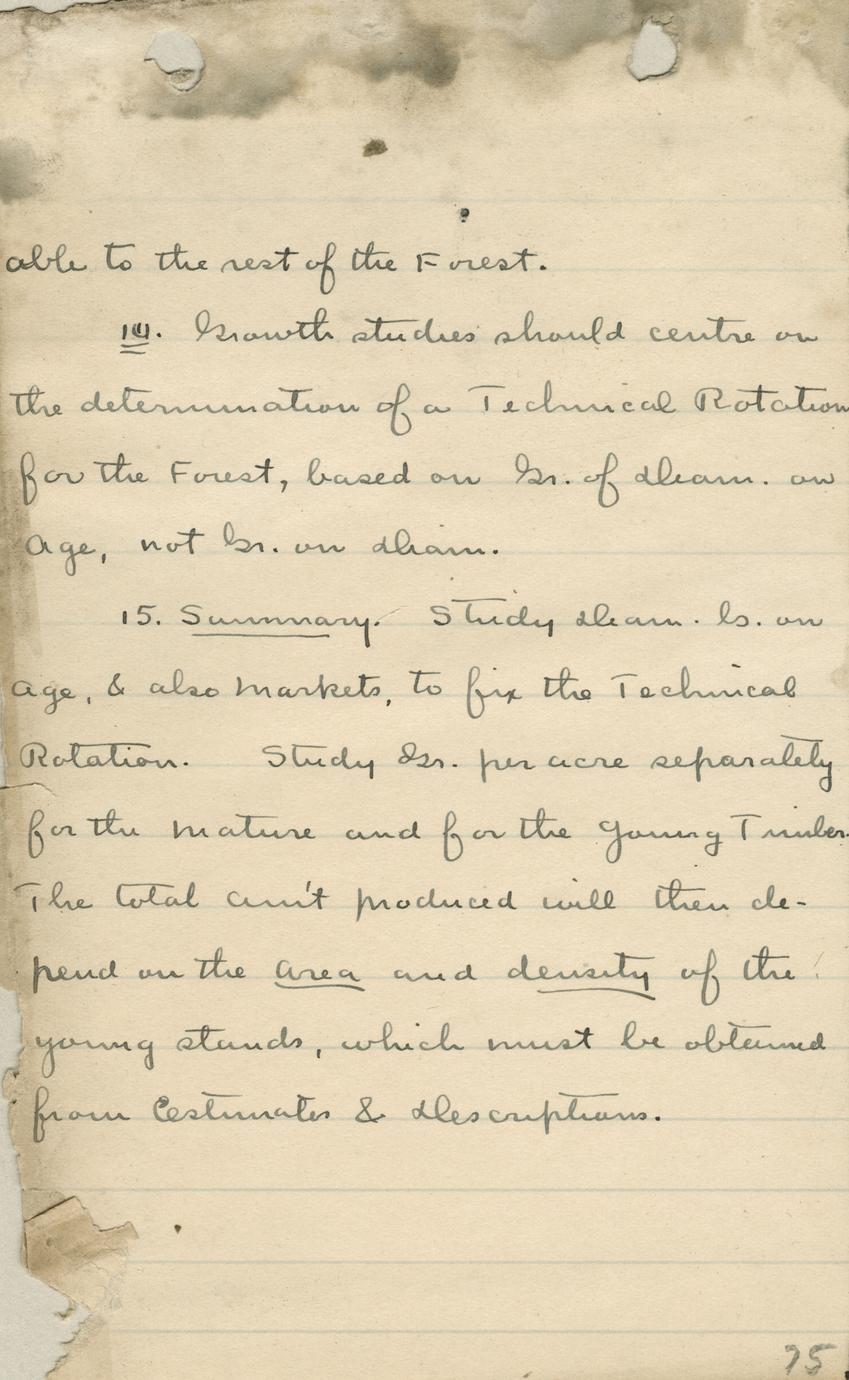 able to the rest of the Forest.
14. Growth studies should centre on
the determination of a Technical Rotation
for the Forest, based on Gr. of Diam. on
Age, not Gr. on Diam.
15. Summary. Study Diam. G. on
Age, & also Markets, to fix the Technical
Rotation. Study Gr. per acre separately
for the Mature and for the Young Timber.
The total am't produced will then de-
pend on the area and density of the
young stands, which must be obtained
from Estimates & Descriptions.
75